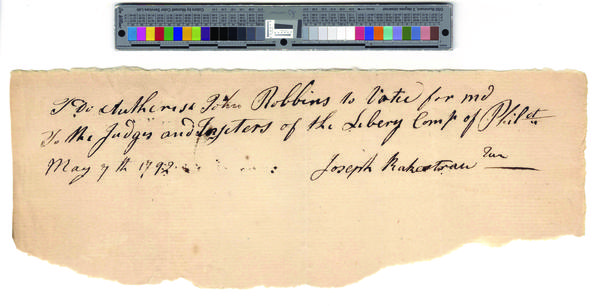 I Do Autherise John Robbins to Votie for me
To the Judges and of the Libery Comp of Philda
May 7th 1792
Joseph Rakestraw Jun